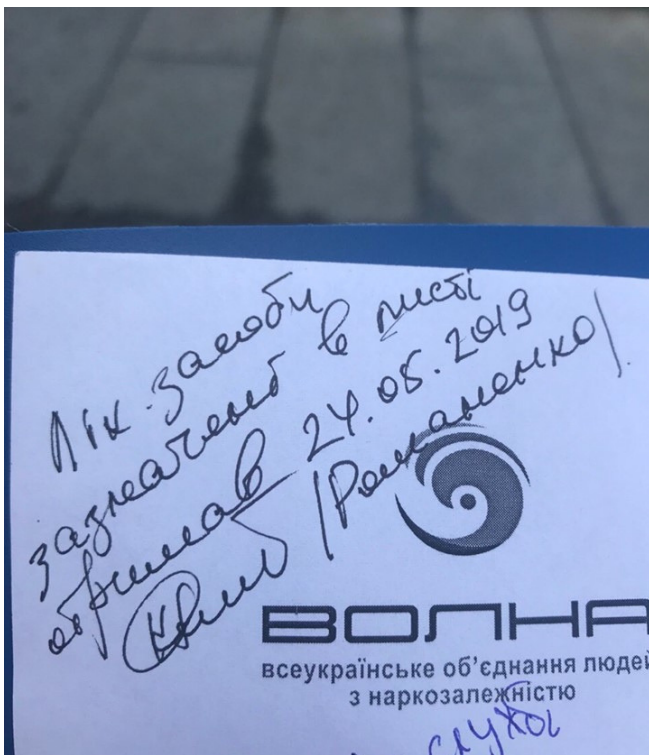 Лік. засоби
зазначені в листі
отримав 24.05.2019
/Романенко/
ВОЛНА
всеукраїнське об'єднання людей
з наркозалежністю
служби